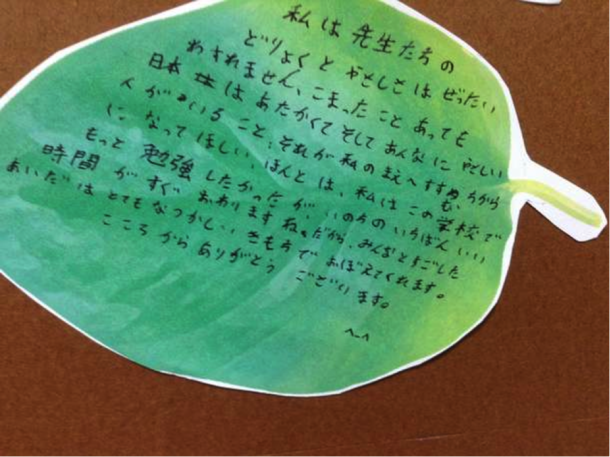 私は先生たちの
どりょくとやさしさはぜったい
わすれません、こまったことあっても
日本は あたかくてそしてあんなに やさしい
人がいること、それが私のまえへすすむちから
になってほしい、ほんとは、私はこの学校で
もっと勉強したかったが、いのちのいちばんいい
時間がすぐおわりますね。だから、みんなとすごした
あいだはとてもなつかしいきもちでおぼえてくれます。
こころからありがとうございます。
^-^